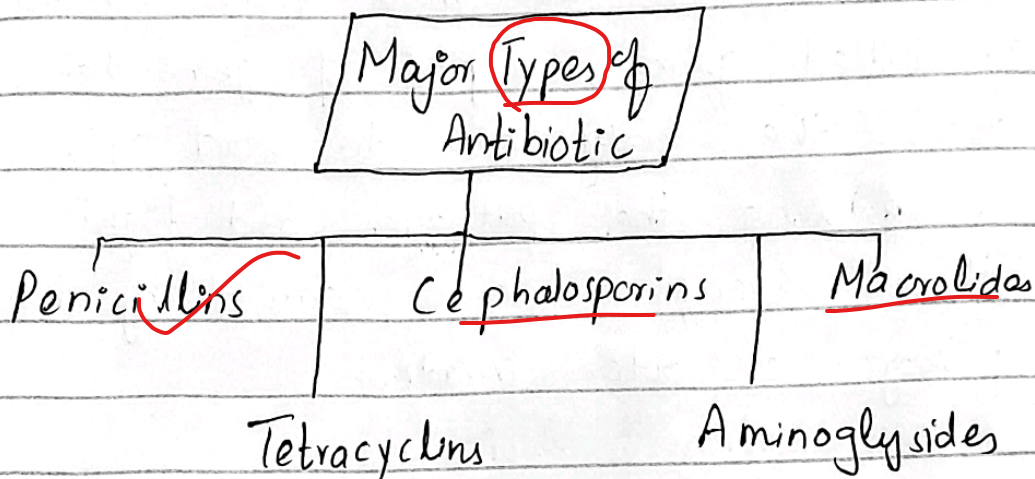 Major Types of
Antibiotic
Penicillins
Cephalosporins
Macrolides
Tetracyclins
Aminoglysides